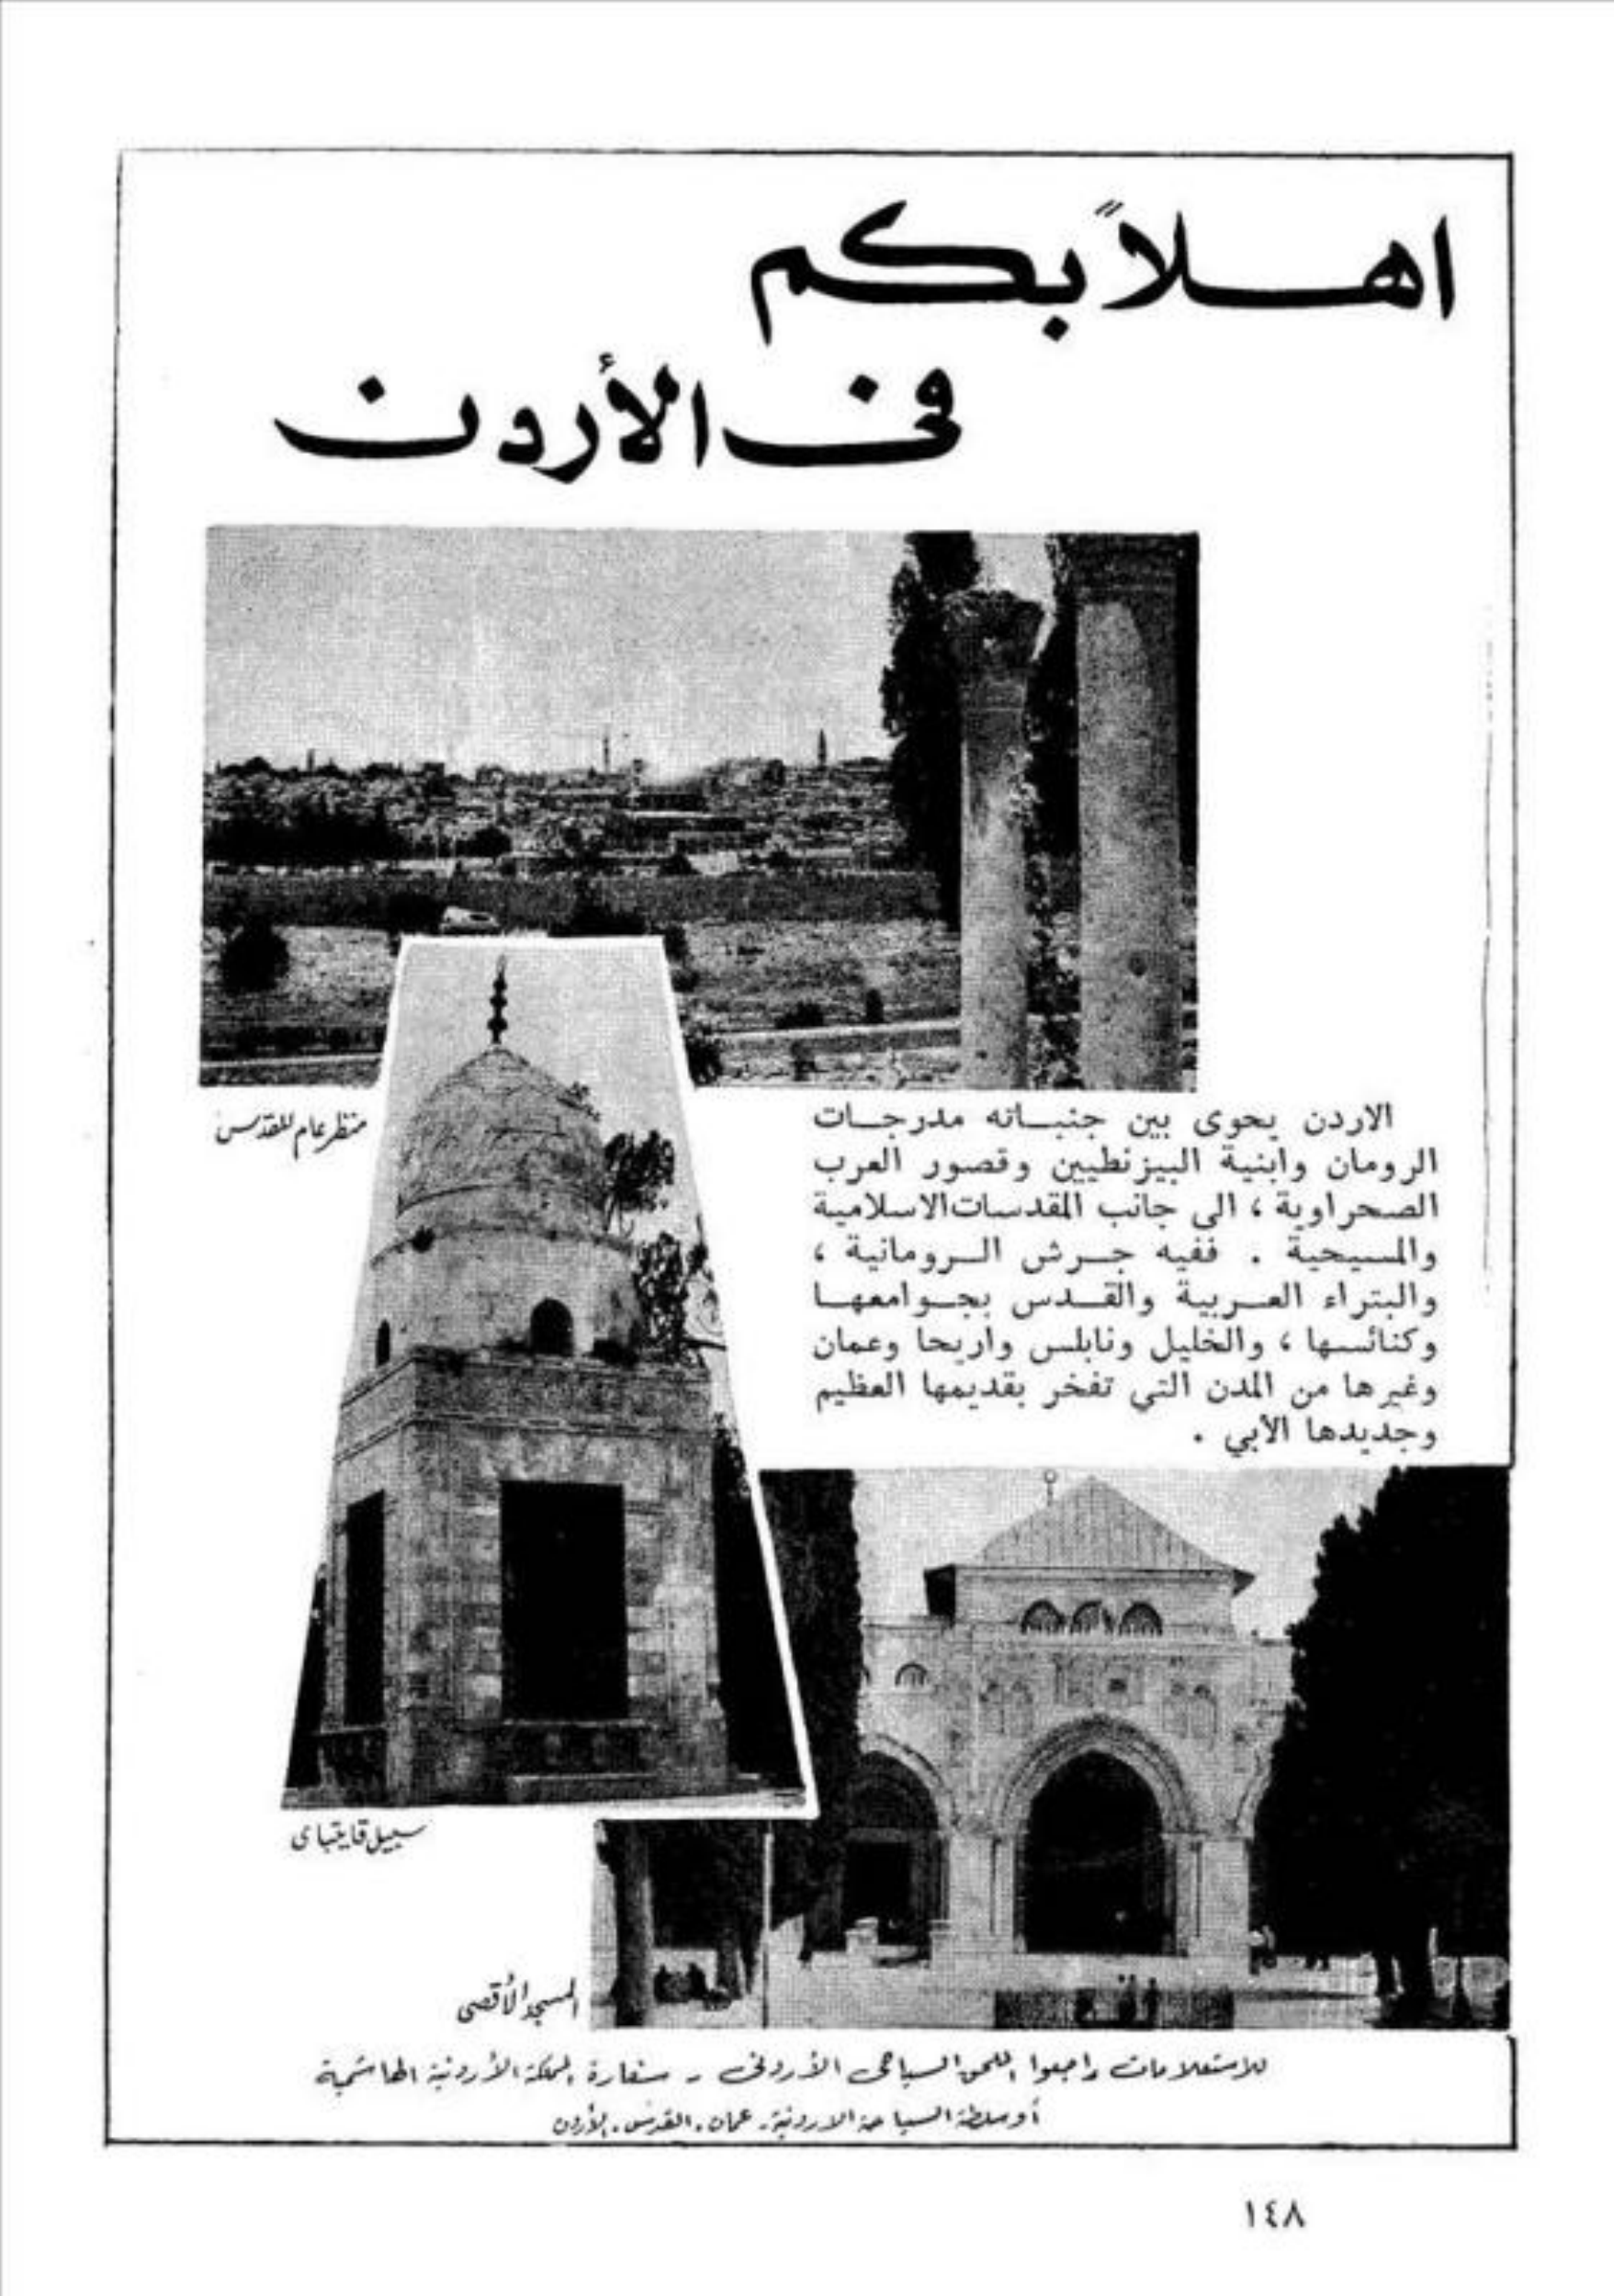 اهلاً بكم
في الأردن
منظر عام للقدس
الاردن يحوى بين جنبانه مدرجات
الرومان وابنية البيزنطيين وقصور العرب
الصحراوية ، الى جانب المقدسات الاسلامية
والمسيحية . ففيه جرش الرومانية ،
والبتراء العربية والقدس بجوامعها
وكنائسها ، والخليل ونابلس واريحا وعمان
وغيرها من المدن التي تفخر بقديمها العظيم
وجديدها الأبي .
سبيل قايتباى
المسجد الأقصى
للاستعلامات راجعوا الملحق السياحى الأردنى - سفارة المملكة الأردنية الهاشمية
أو سلطة السياحة الاردنية. عمان. القدس. الأردن
١٤٨